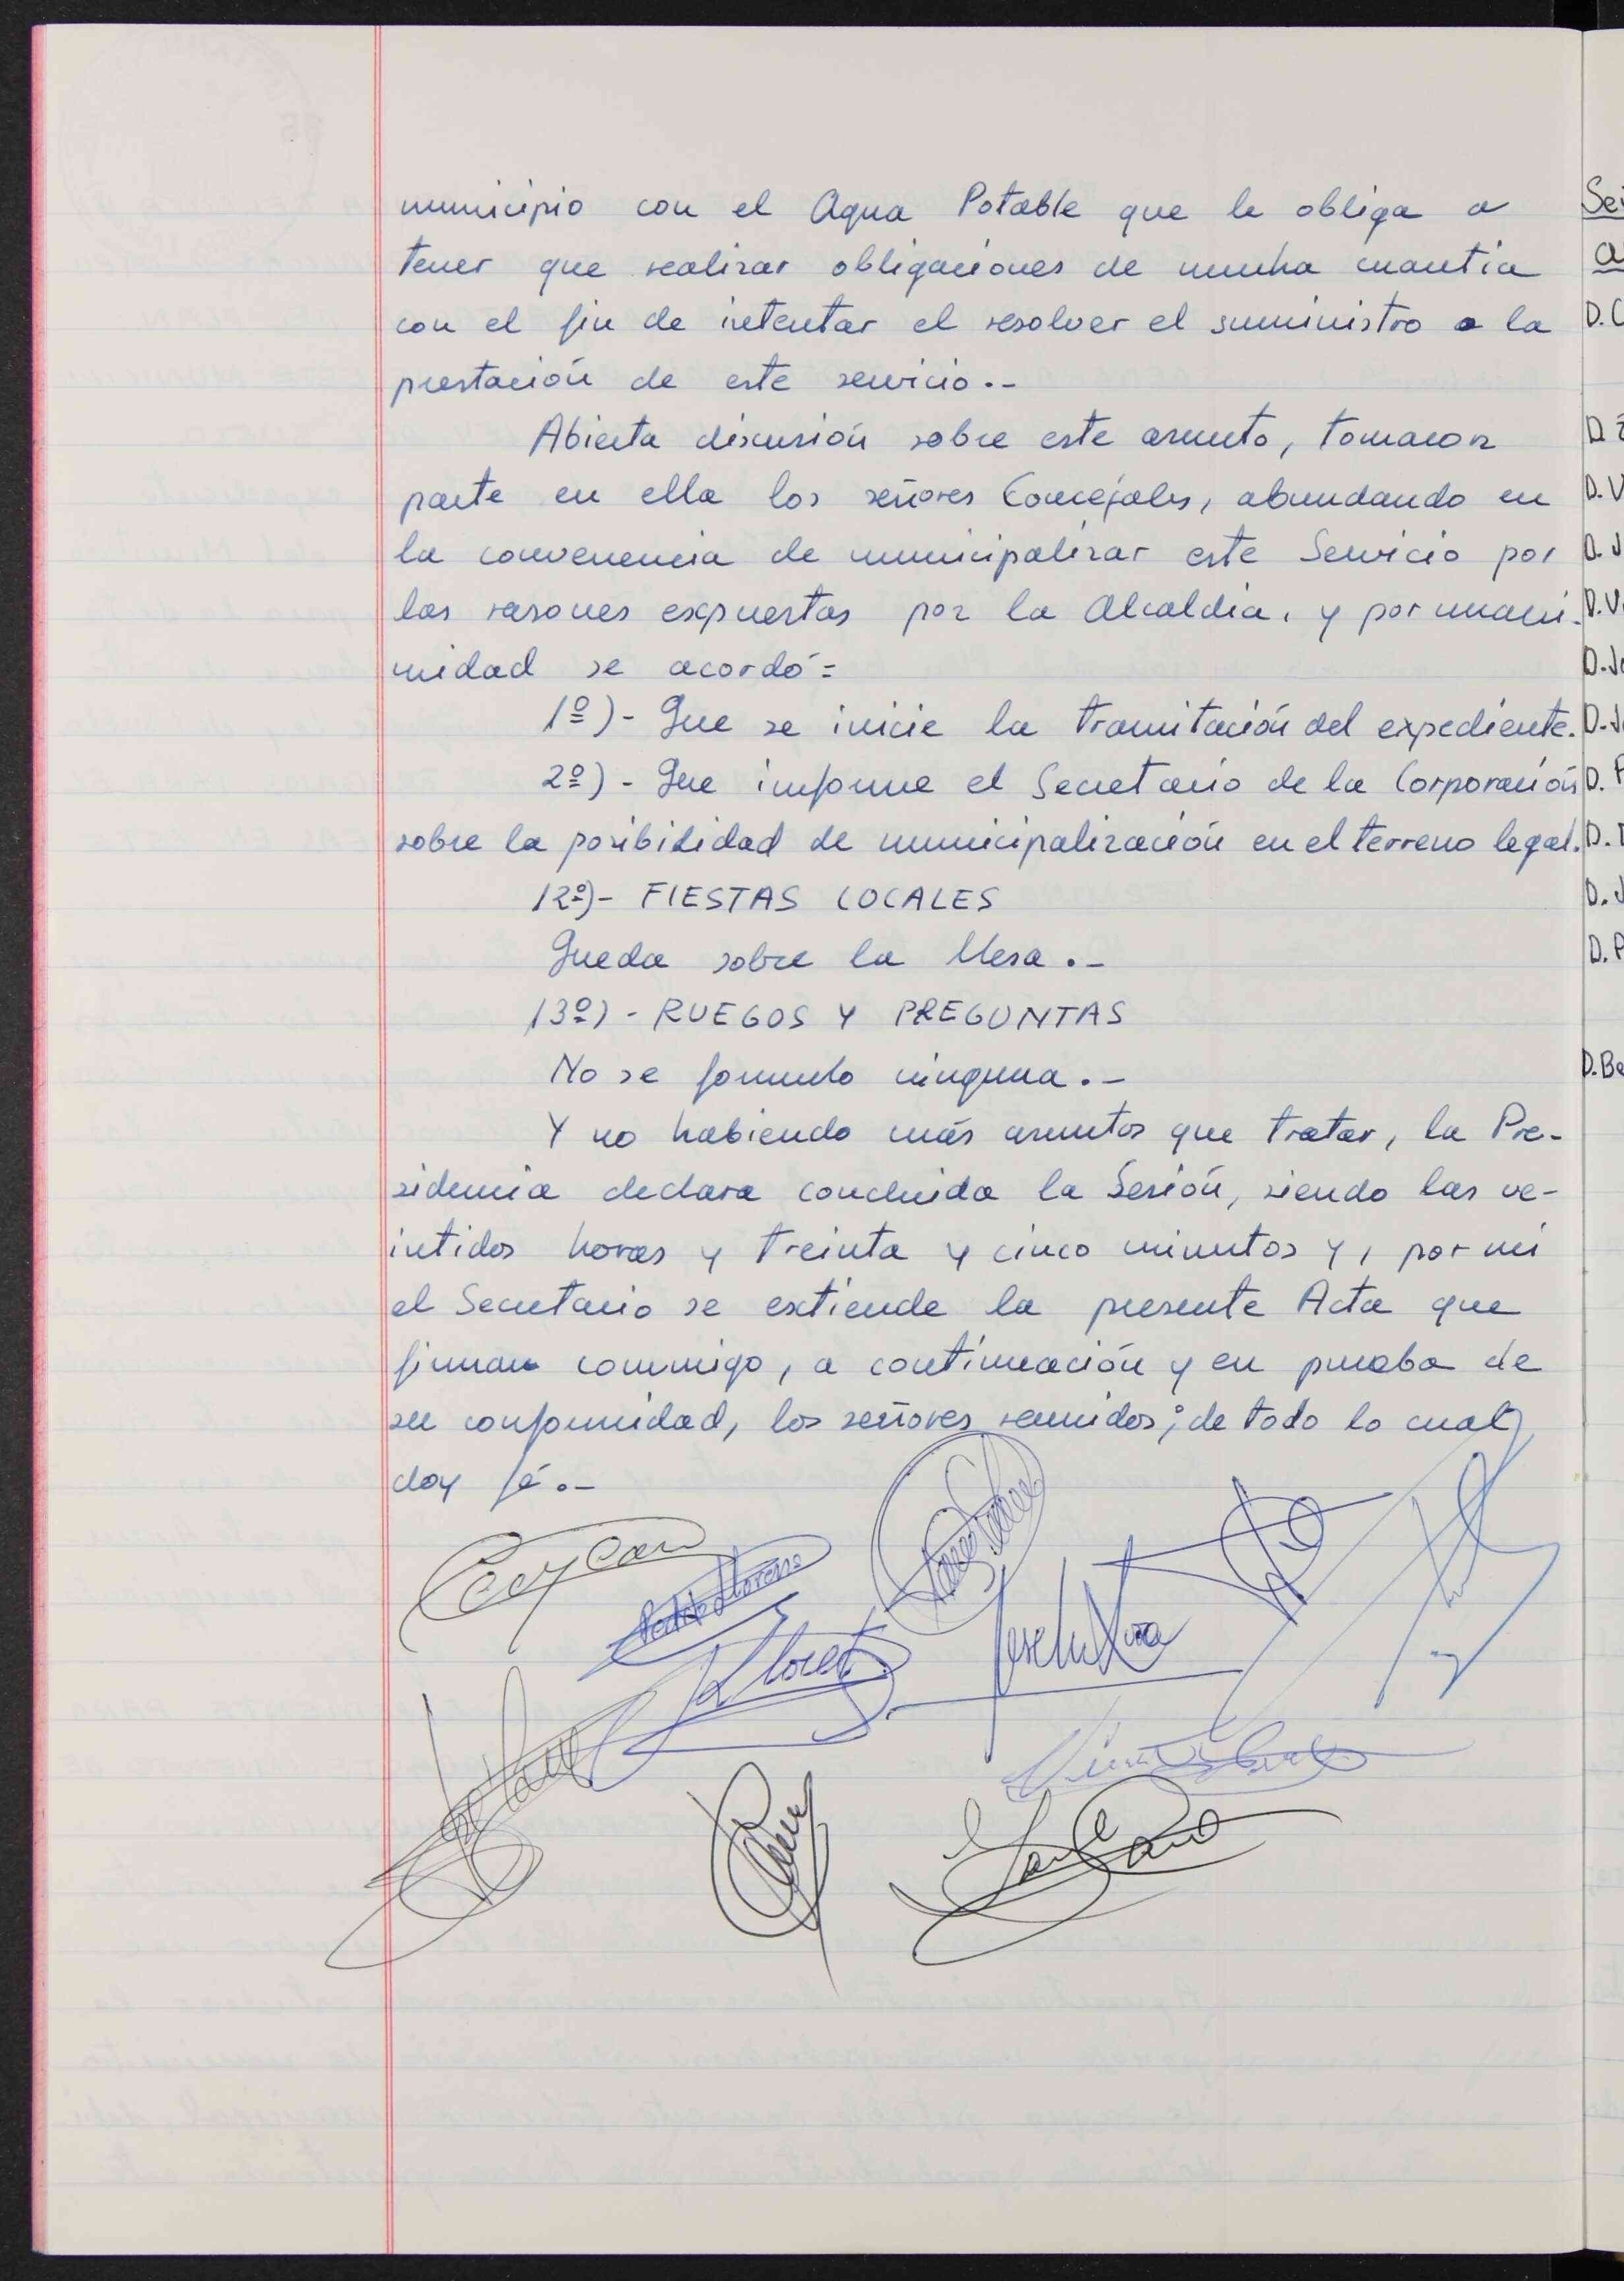 municipio con el Agua Potable que le obliga a
tener que realizar obligaciones de mucha cuantía
con el fin de intentar el resolver el suministro o la
prestación de este servicio.-
Abierta discusión sobre este asunto, tomaron
parte en ella los señores Concejales, abundando en
la convenencia de municipalizar este Servicio por
las rasones expuestas por la Alcaldía, y por unani-
midad se acordó=
1º)- Que se inicie la tramitación del expediente.
2º)- Que informe el Secretario de la Corporación
sobre la posibilidad de municipalización en el terreno legal.
12º)- FIESTAS LOCALES
Queda sobre la Mesa.-
13º)- RUEGOS Y PREGUNTAS
No se formulo ninguna.-
Y no habiendo más asuntos que tratar, la Pre-
sidencia declara concluida la Sesión, siendo las ve-
intidos horas y treinta y cinco minutos y, por mi
el Secretario se extiende la presente Acta que
firman conmigo, a continuación y en prueba de
su conformidad, los señores reunidos; de todo lo cual
doy fé.-
Lloret